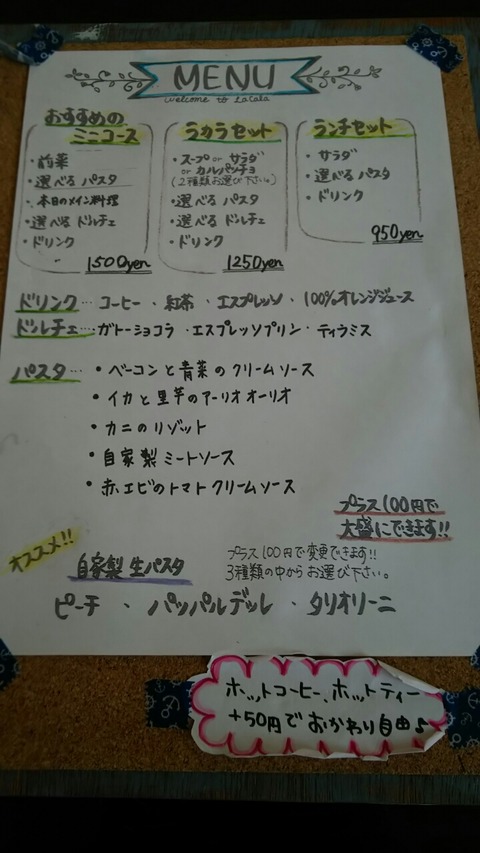 MENU
welcome to LaCala
おすすめの
ミニコース
・前菜
・選べる パスタ
・本日のメイン料理
・選べる ドルチェ
・ドリンク
1500yen
ラカラセット
・スープ or サラダ
or カルパッチョ
(2種類お選び下さい)
・選べる パスタ
・選べる ドルチェ
・ドリンク
1250yen
ランチセット
・サラダ
・選べる パスタ
・ドリンク
950yen
ドリンク…コーヒー・紅茶・エスプレッソ・100%オレンジジュース
ドルチェ…ガトーショコラ・エスプレッソプリン・ティラミス
パスタ…・ベーコンと青菜のクリームソース
・イカと里芋のアーリオオーリオ
・カニのリゾット
・自家製ミートソース
・赤エビのトマトクリームソース
プラス100円で
大盛にできます!!
オススメ!!
自家製 生パスタ
プラス100円で変更できます!!
3種類の中からお選び下さい。
ピーチ ・ パッパルデッレ ・ タリオリーニ
ホットコーヒー、ホットティー
+50円でおかわり自由♪